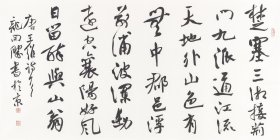 楚塞三湘接荊
門九派通江流
天地外山色有
無中郡邑浮
前浦波瀾動
遠空襄陽好風
日留醉與山翁
唐王維詩
書於京